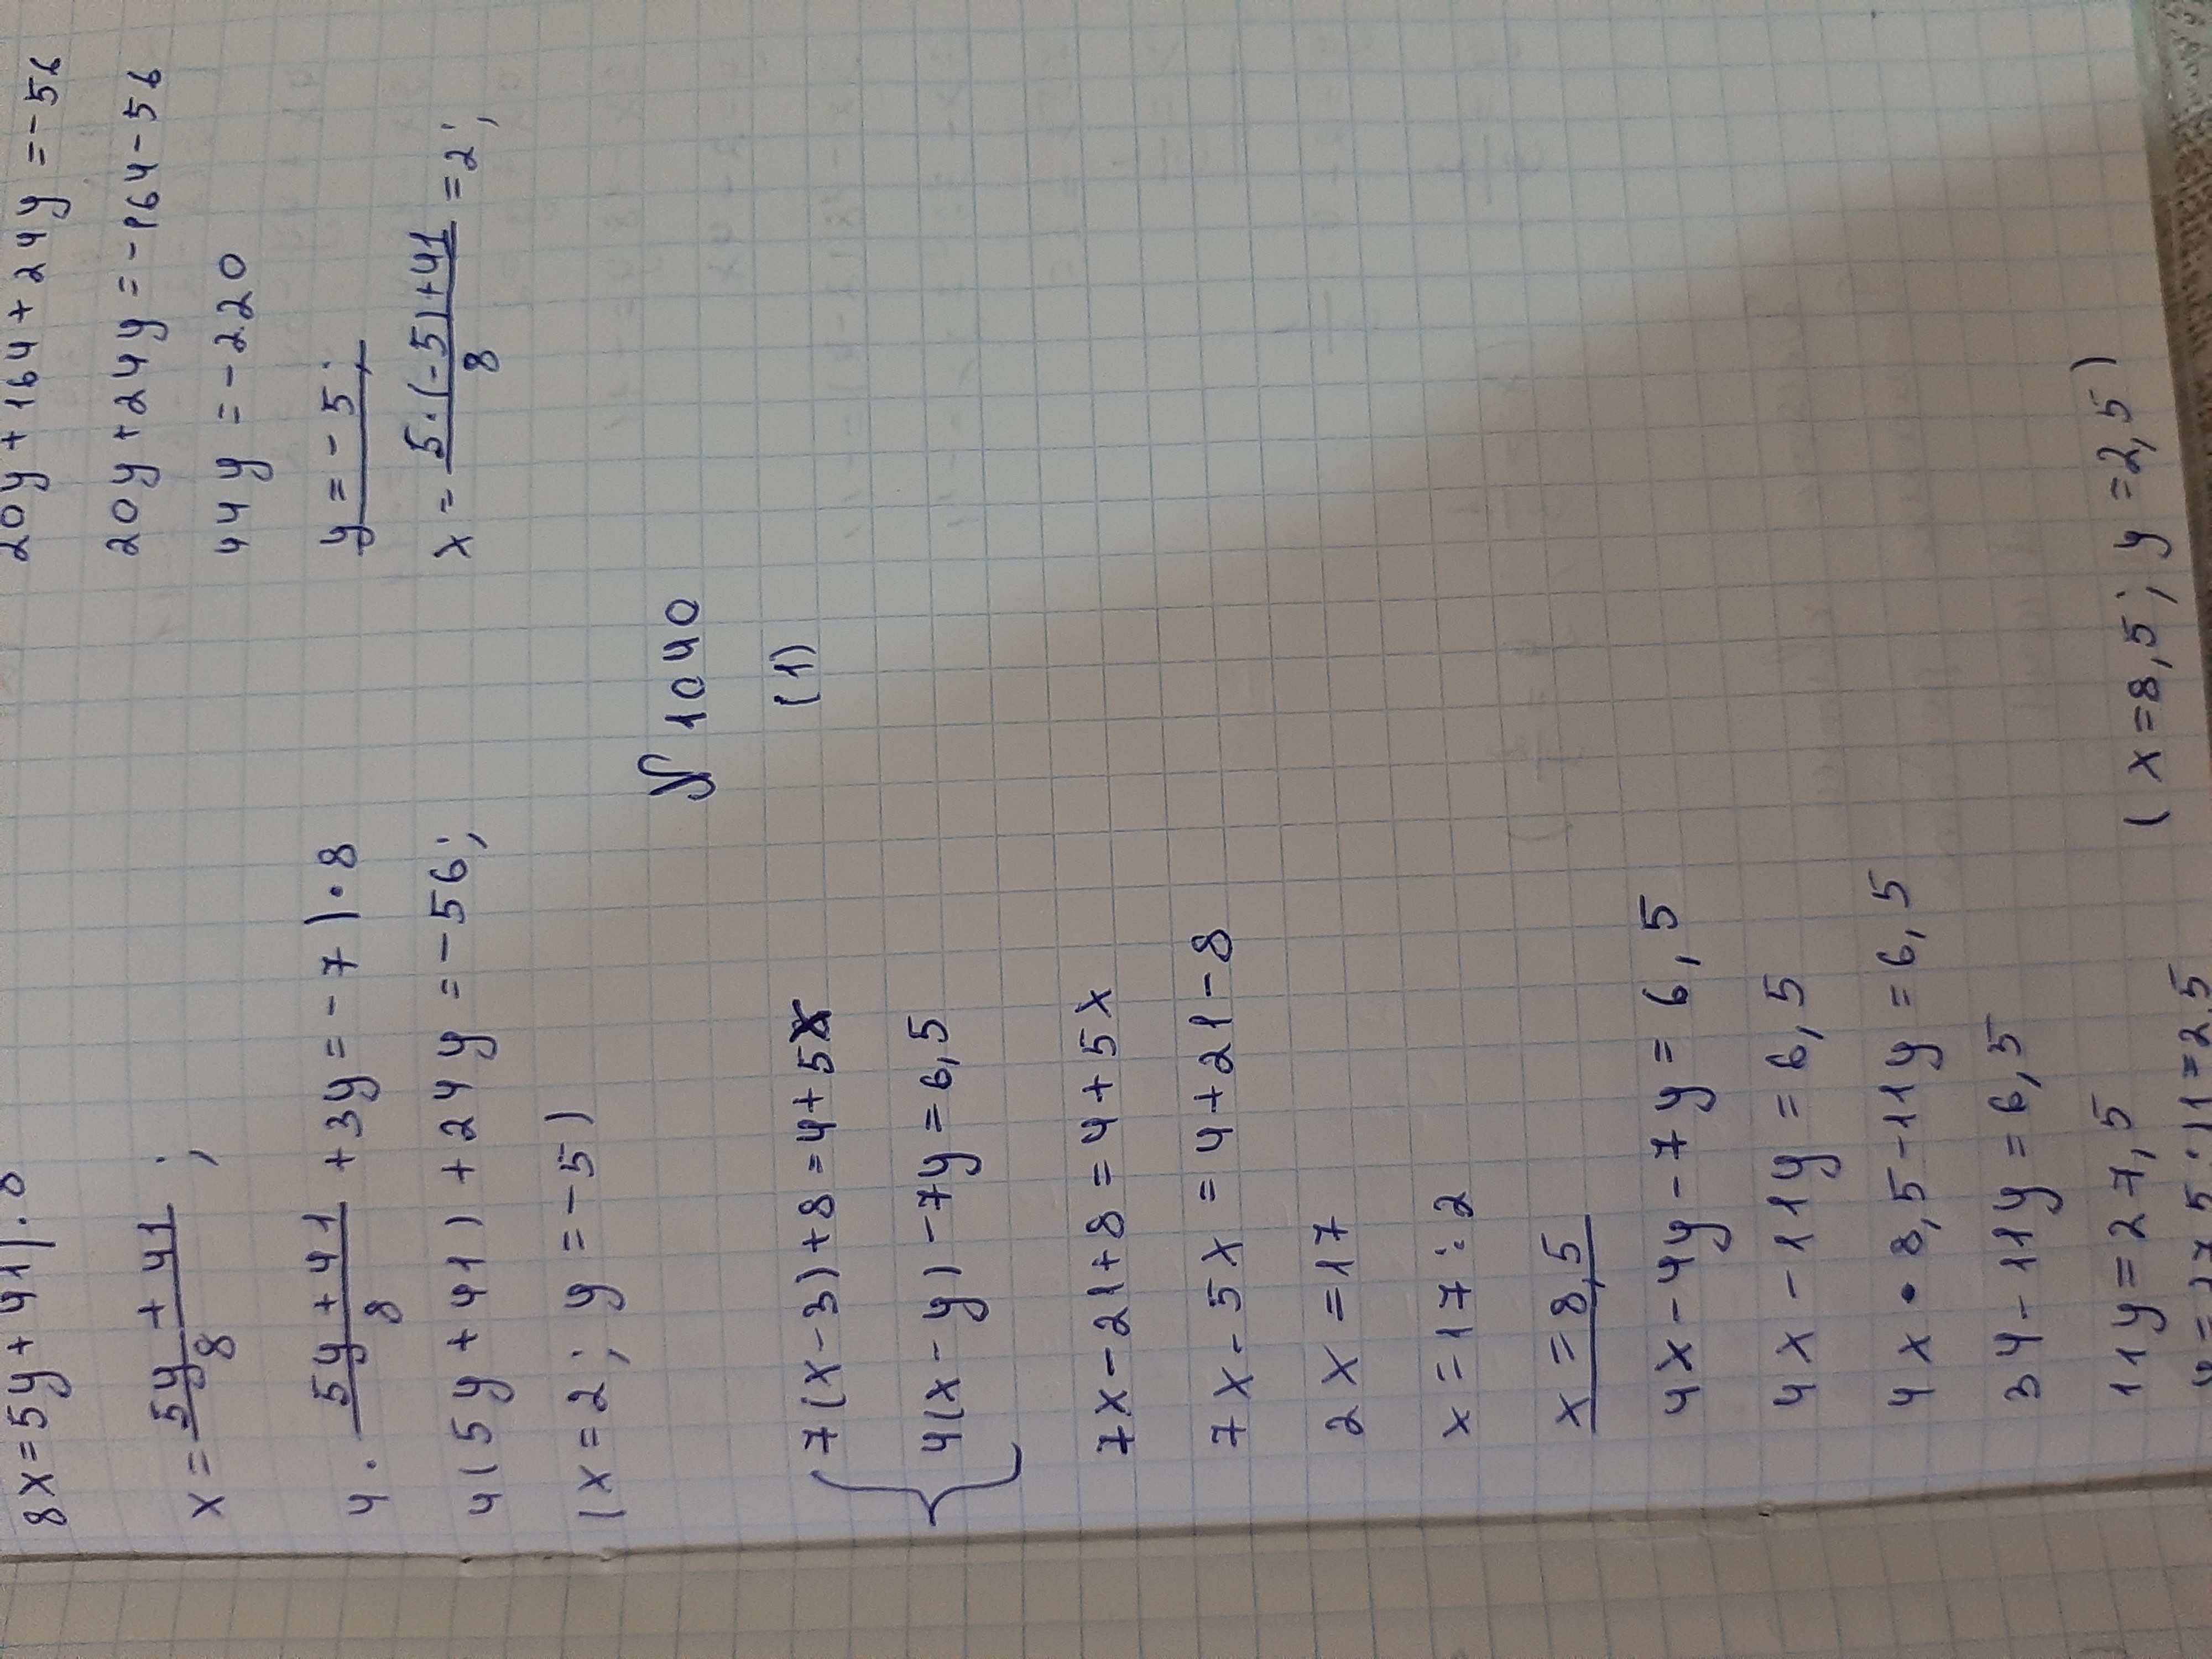 8x=5y+41|:8
x=5y+41/8;
4·5y+41/8+3y=-7|·8
4(5y+41)+24y=-56;
(x=2; y=-5)
20y+164+24y=-56
20y+24y=-164-56
44y=-220
y=-5;
x=5·(-5)+41/8=2;
№1040
(1)
{7(x-3)+8=4+5x
4(x-y)-7y=6,5
7x-21+8=4+5x
7x-5x=4+21-8
2x=17
x=17:2
x=8,5
4x-4y-7y=6,5
4x-11y=6,5
4x·8,5-11y=6,5
34-11y=6,5
11y=27,5
y=27,5:11=2,5
(x=8,5; y=2,5)